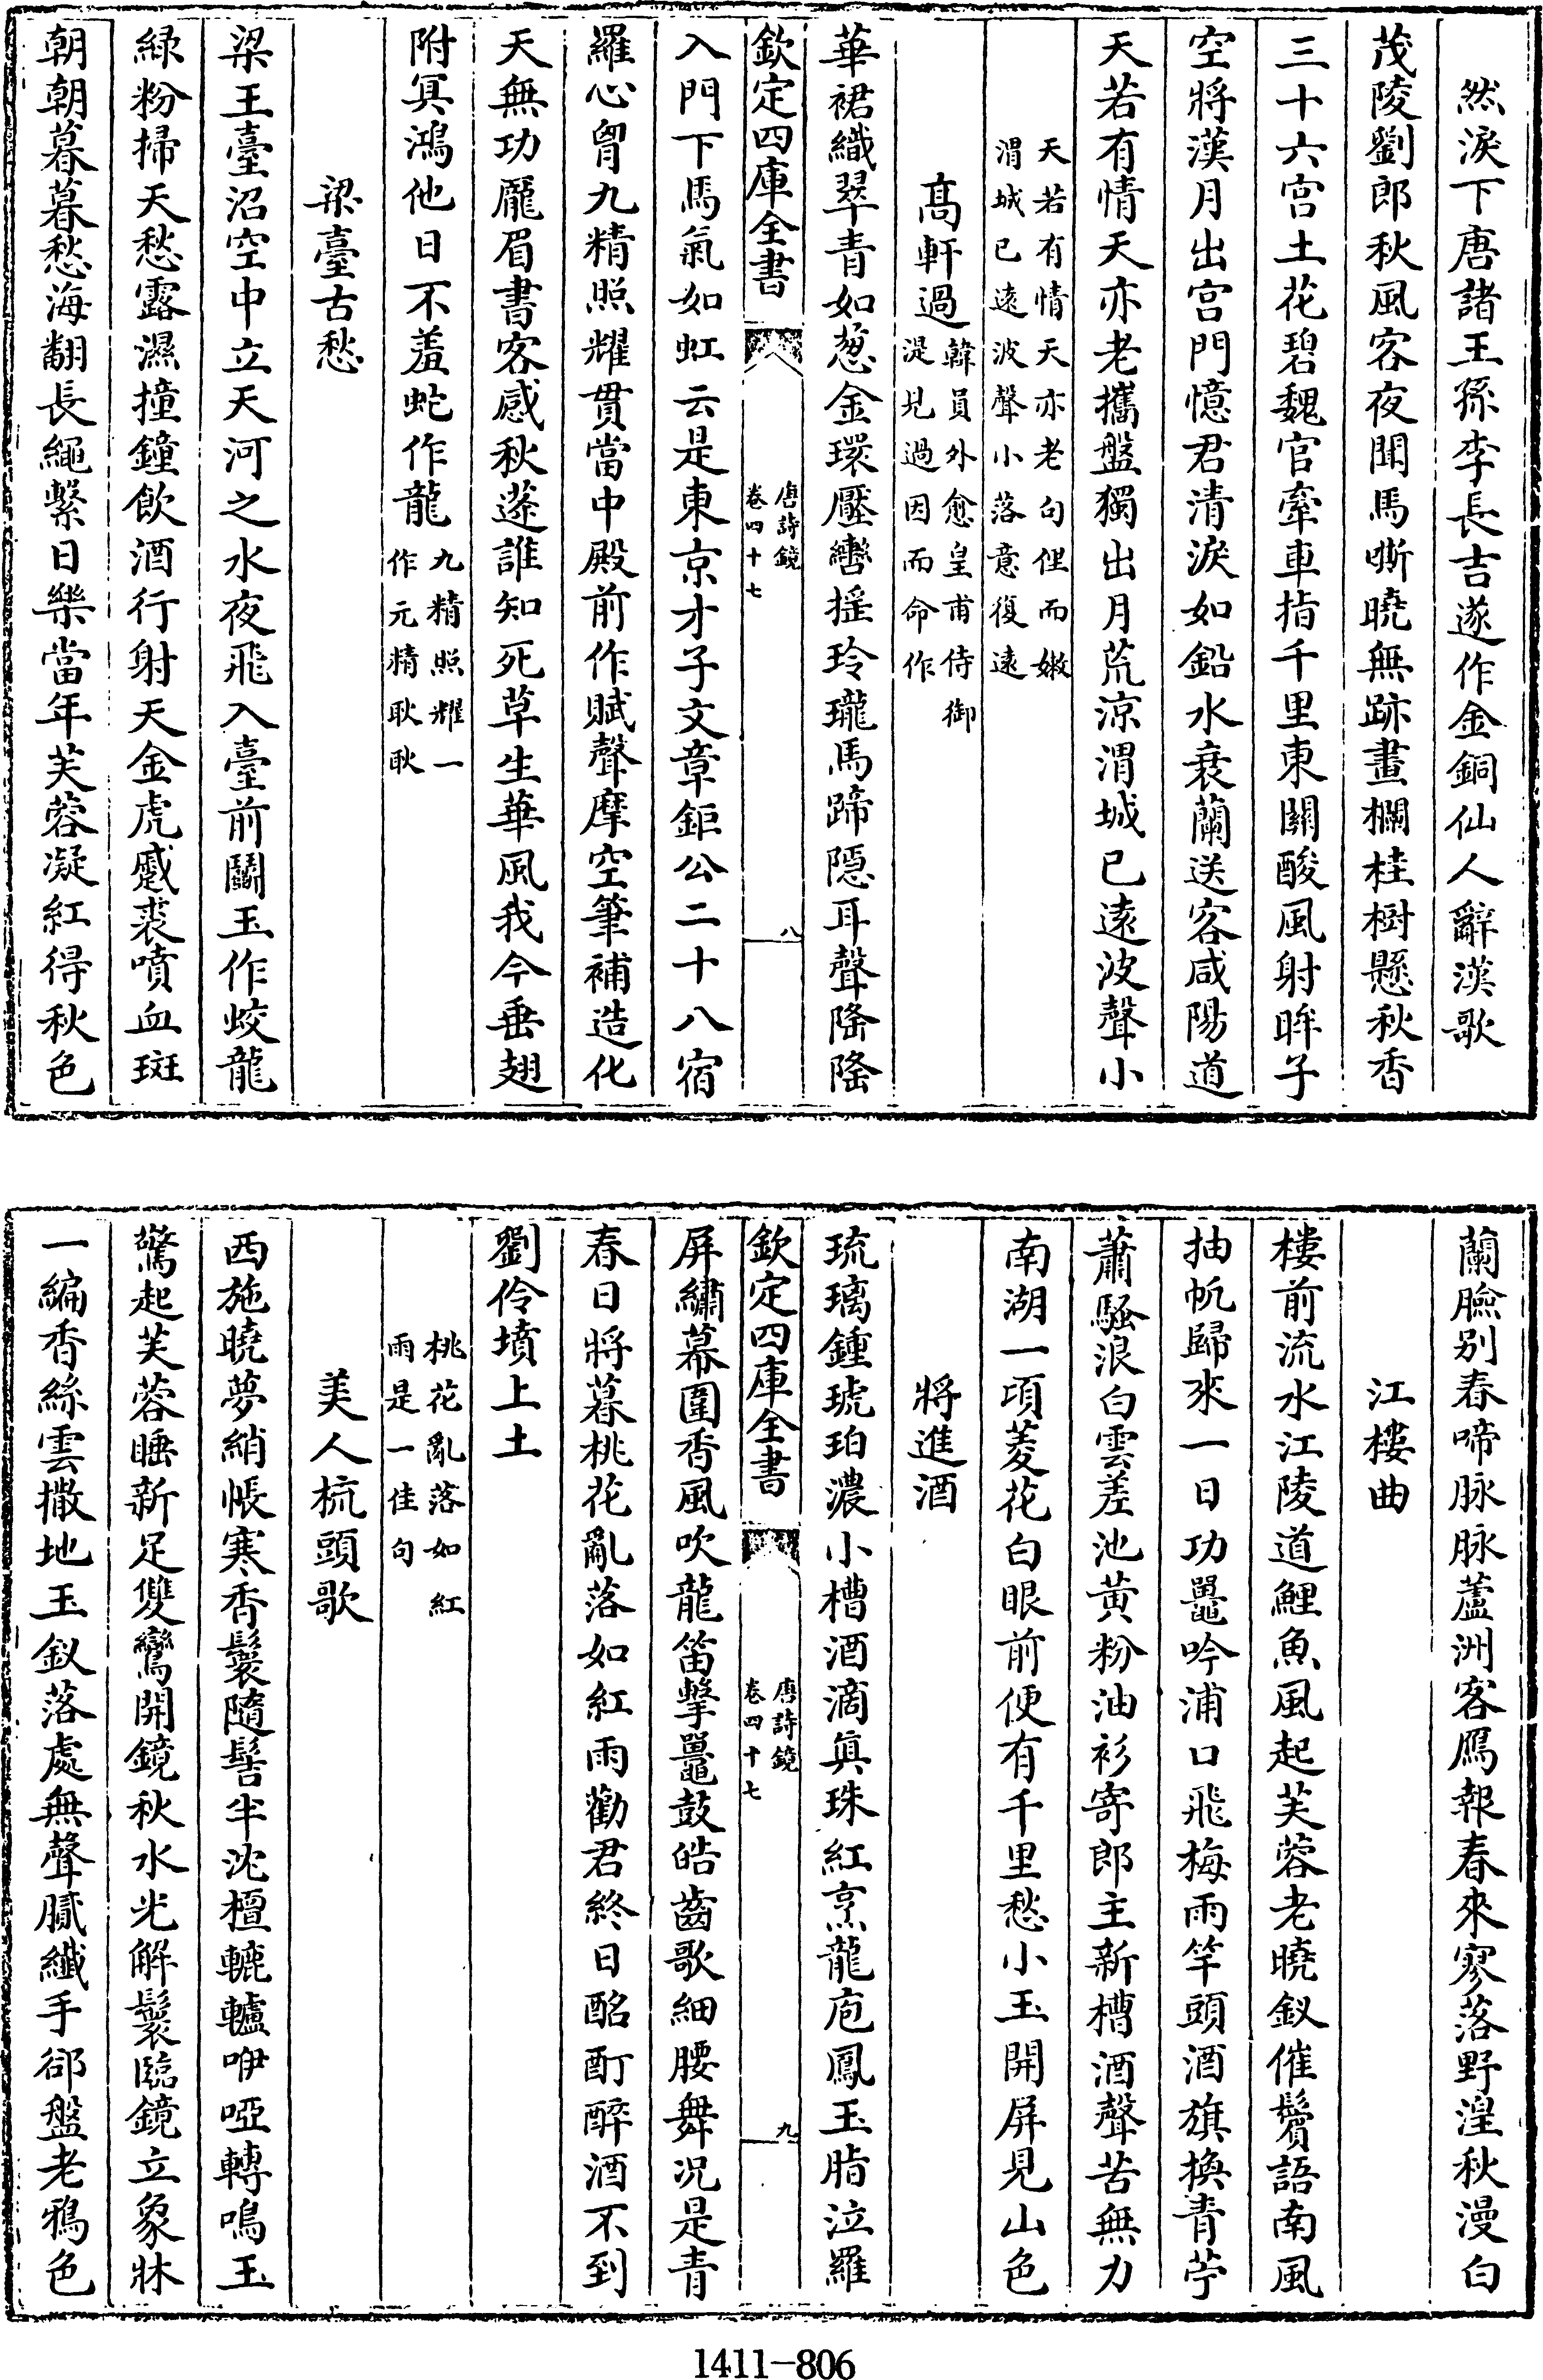 然淚下唐諸王孫李長吉遂作金銅仙人辭漢歌
茂陵劉郎秋風客夜聞馬嘶曉無跡畫欄桂樹懸秋香
三十六宫土花碧魏官牽車指千里東關酸風射眸子
空將漢月出宫門憶君清淚如鉛水衰蘭送客咸陽道
天若有情天亦老攜盤獨出月荒涼渭城已遠波聲小
天若有情天亦老句俚而嫩
渭城已遠波聲小落意復遠
高軒過
韓員外愈皇甫侍御
湜見過因而命作
華裾織翠青如葱金環壓轡摇玲瓏馬蹄隠耳聲隆隆
欽定四庫全書
唐詩鏡
卷四十七
八
入門下馬氣如虹云是東京才子文章鉅公二十八宿
羅心胷九精照耀貫當中殿前作賦聲摩空筆補造化
天無功龎眉書客感秋蓬誰知死草生華風我今垂翅
附冥鴻他日不羞蛇作龍
九精照耀一
作元精耿耿
梁臺古愁
梁王臺沼空中立天河之水夜飛入臺前鬬玉作蛟龍
緑粉掃天愁露濕撞鐘飲酒行射天金虎蹙裘噴血斑
朝朝暮暮愁海翻長繩繫日樂當年芙蓉凝紅得秋色
蘭臉别春啼脉脉蘆洲客鴈報春來寥落野湟秋漫白
江樓曲
樓前流水江陵道鯉魚風起芙蓉老曉釵催鬢語南風
抽帆歸來一日功鼉吟浦口飛梅雨竿頭酒旗換青苧
蕭騷浪白雲差池黄粉油衫寄郎主新槽酒聲苦無力
南湖一項菱花白眼前便有千里愁小玉開屏見山色
將進酒
琉璃鍾琥珀濃小槽酒滴真珠紅烹龍庖鳳玉脂泣羅
欽定四庫全書
唐詩鏡
卷四十七
九
屏繡幕圍香風吹龍笛擊鼉鼓皓齒歌細腰舞况是青
春日將暮桃花亂落如紅雨勸君終日酩酊醉酒不到
劉伶墳上土
桃花亂落如紅
雨是一佳句
美人梳頭歌
西施曉夢綃帳寒香鬟隨髻半沈檀轆轤咿啞轉鳴玉
驚起芙蓉睡新足雙鸞開鏡秋水光解鬟臨鏡立象牀
一編香絲雲撒地玉釵落處無聲膩纖手郤盤老鴉色
1411-806